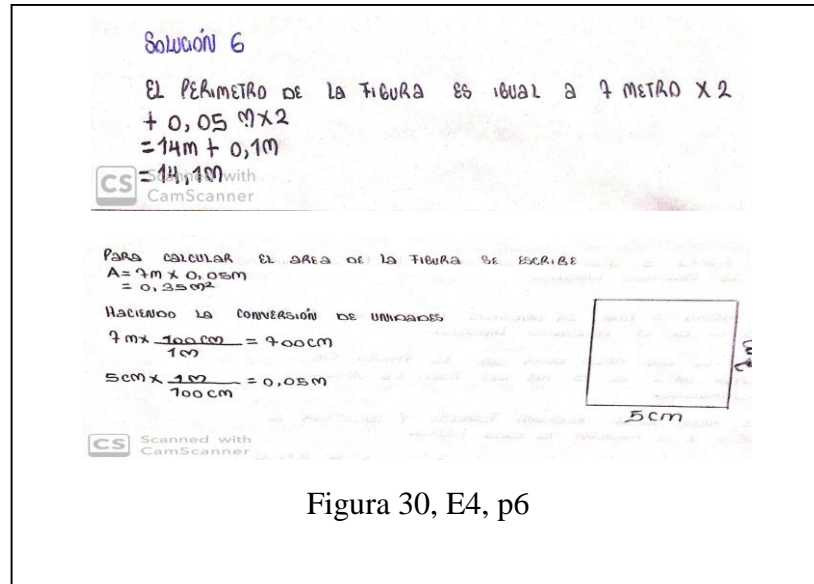 Solución 6
EL PERIMETRO DE LA FIGURA ES IGUAL A 7 METRO X 2
+ 0,05 M X 2
= 14m + 0,1m
= 14,1m
CS Scanned with
CamScanner
PARA CALCULAR EL AREA DE LA FIGURA SE ESCRIBE
A = 7m x 0,05m
= 0,35m²
HACIENDO LA CONVERSIÓN DE UNIDADES
7 m x 100 cm / 1m = 700cm
5cm x 1m / 100 cm = 0,05m
7m
5 cm
CS Scanned with
CamScanner
Figura 30, E4, p6